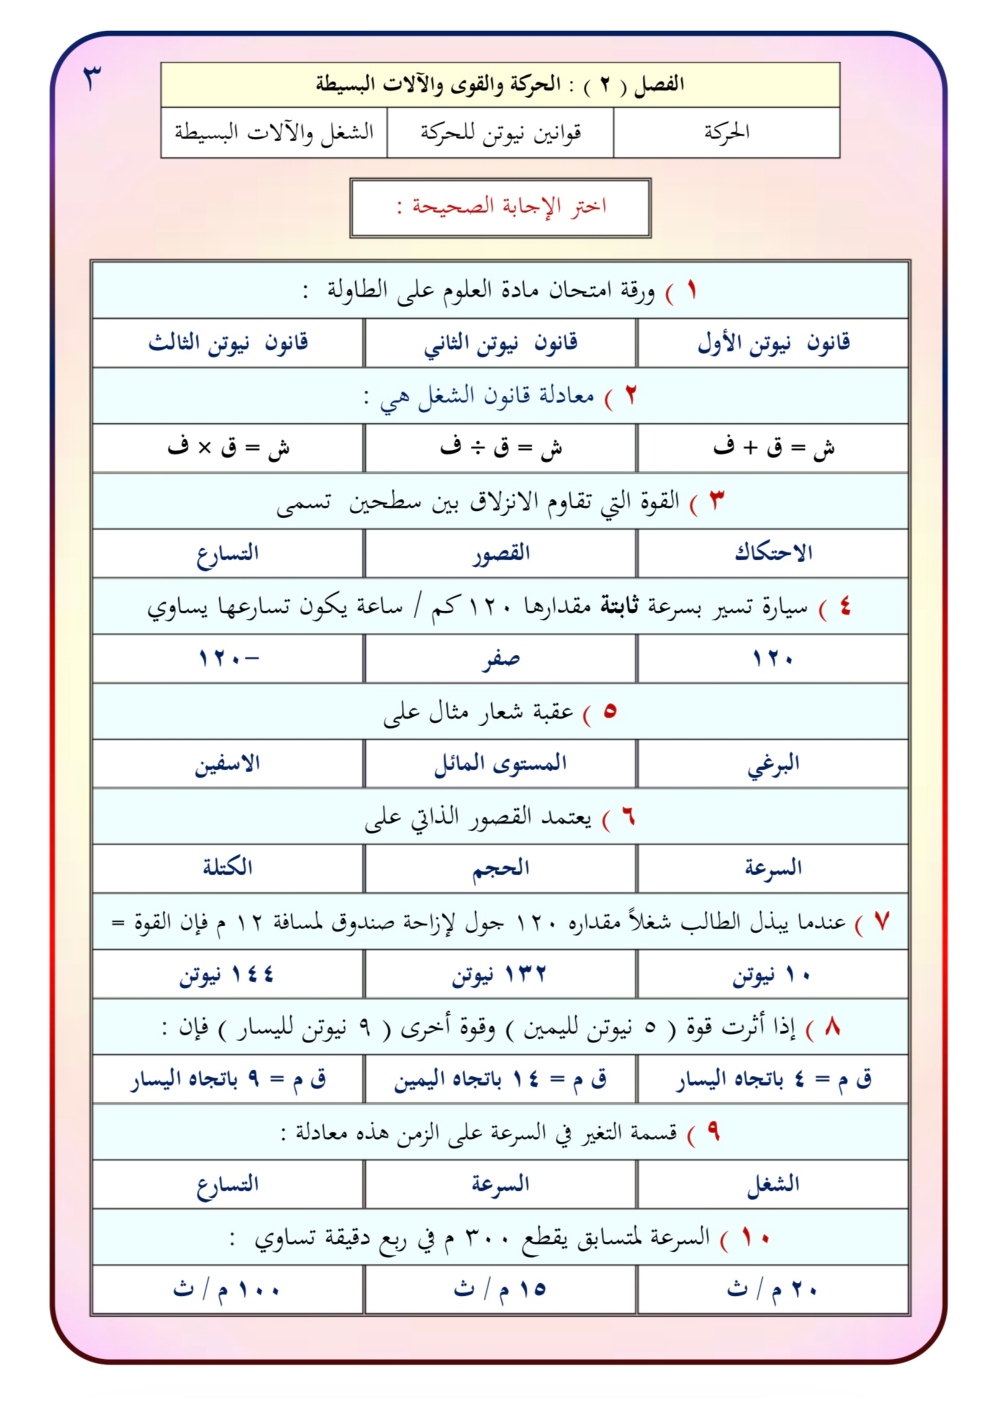 ٣
الفصل ( ٢ ) : الحركة والقوى والآلات البسيطة
الحركة قوانين نيوتن للحركة الشغل والآلات البسيطة
اختر الإجابة الصحيحة :
١ ) ورقة امتحان مادة العلوم على الطاولة :
قانون نيوتن الأول قانون نيوتن الثاني قانون نيوتن الثالث
٢ ) معادلة قانون الشغل هي :
ش = ق + ف ش = ق ÷ ف ش = ق × ف
٣ ) القوة التي تقاوم الانزلاق بين سطحين تسمى
الاحتكاك القصور التسارع
٤ ) سيارة تسير بسرعة ثابتة مقدارها ١٢٠ كم / ساعة يكون تسارعها يساوي
١٢٠ صفر −١٢٠
٥ ) عقبة شعار مثال على
البرغي المستوى المائل الاسفين
٦ ) يعتمد القصور الذاتي على
السرعة الحجم الكتلة
٧ ) عندما يبذل الطالب شغلاً مقداره ١٢٠ جول لإزاحة صندوق لمسافة ١٢ م فإن القوة =
١٠ نيوتن ١٣٢ نيوتن ١٤٤ نيوتن
٨ ) إذا أثرت قوة ( ٥ نيوتن لليمين ) وقوة أخرى ( ٩ نيوتن لليسار ) فإن :
ق م = ٤ باتجاه اليسار ق م = ١٤ باتجاه اليمين ق م = ٩ باتجاه اليسار
٩ ) قسمة التغير في السرعة على الزمن هذه معادلة :
الشغل السرعة التسارع
١٠ ) السرعة لمتسابق يقطع ٣٠٠ م في ربع دقيقة تساوي :
٢٠ م / ث ١٥ م / ث ١٠٠ م / ث